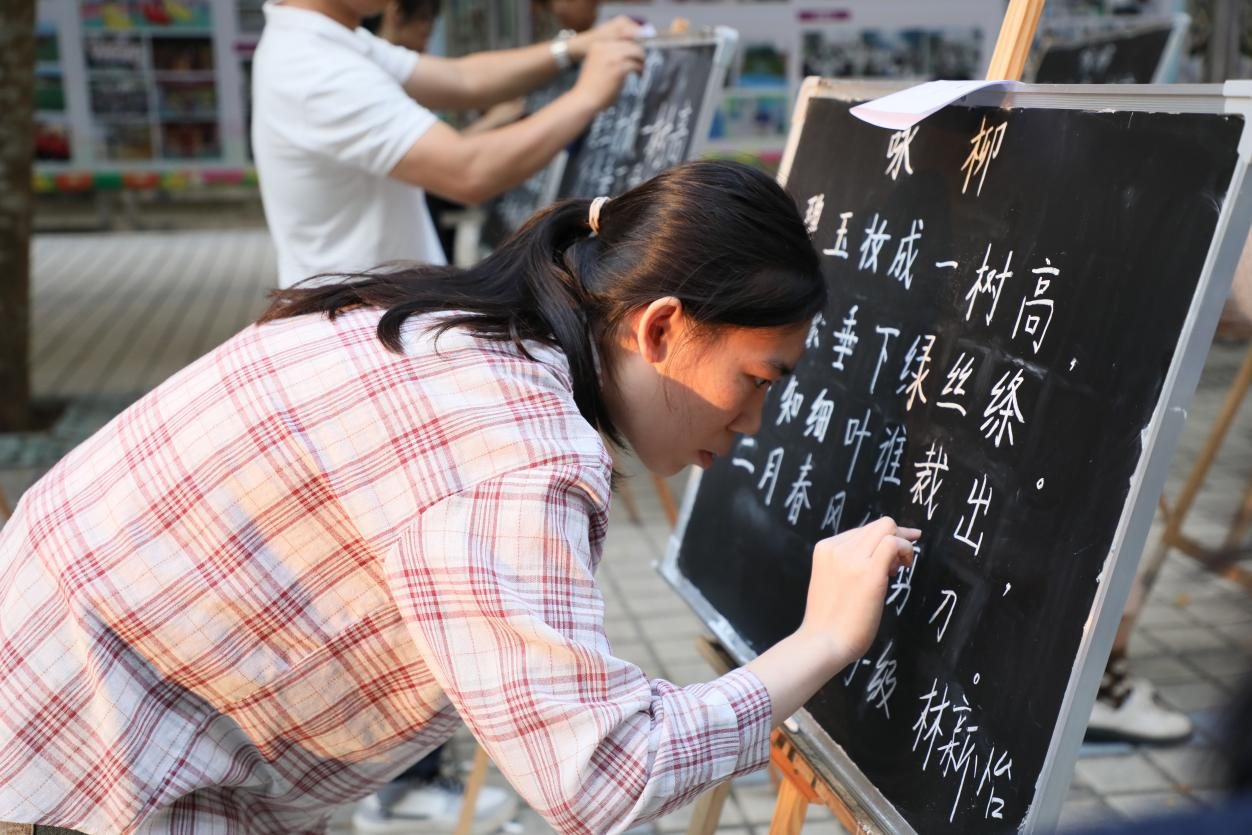 咏柳
碧玉妆成一树高，
垂下绿丝绦。
知细叶谁裁出，
二月春风剪刀。
级
林薪怡